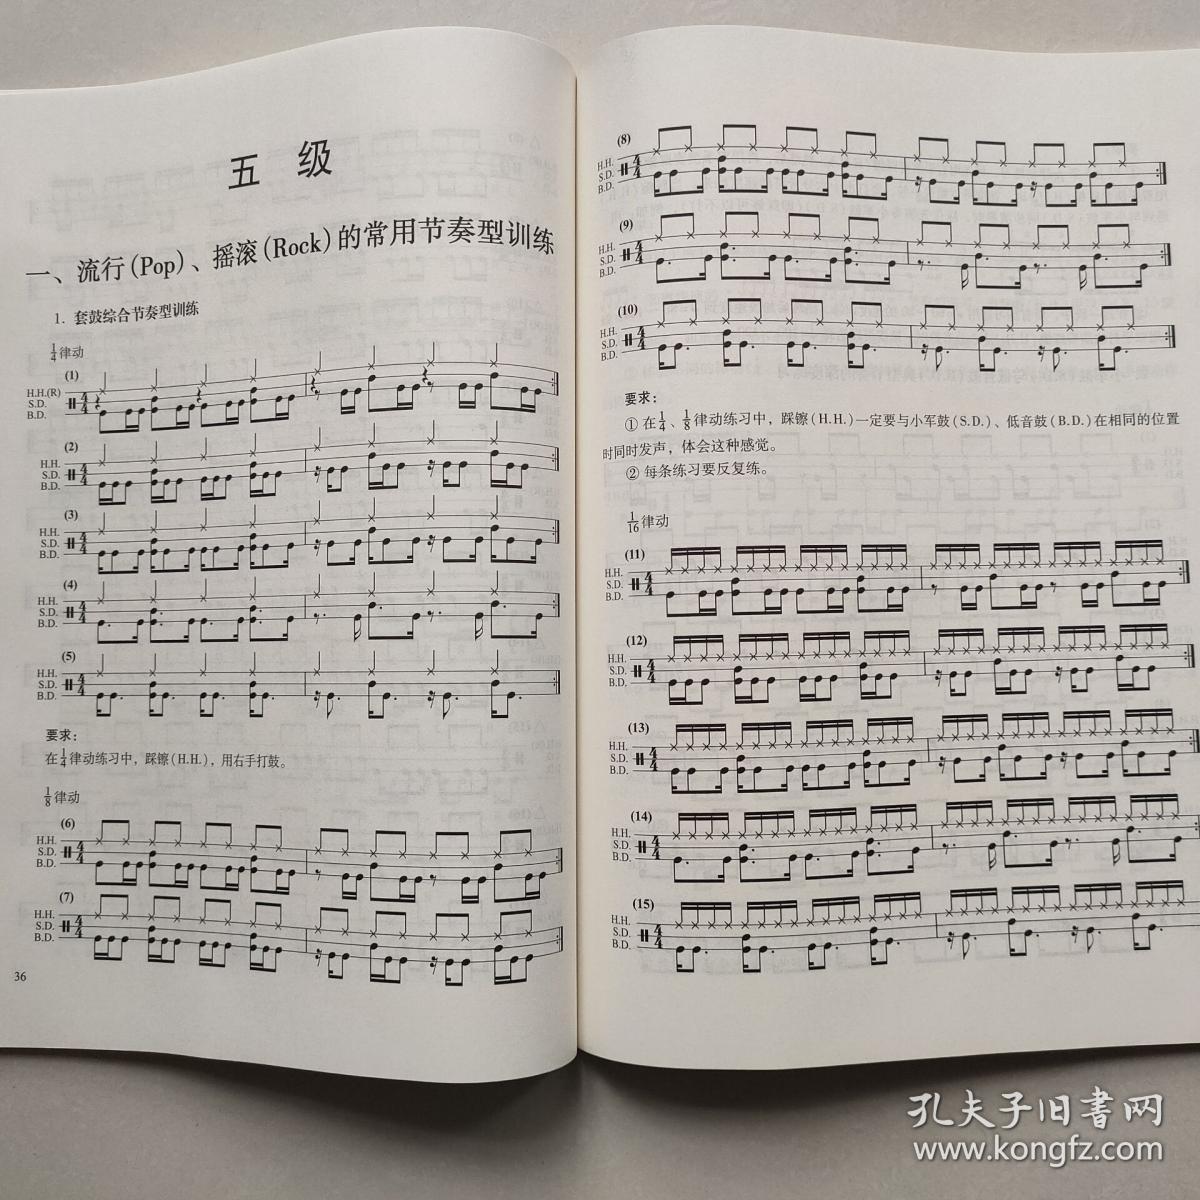 五 级
一、流行(Pop)、摇滚(Rock)的常用节奏型训练
1. 套鼓综合节奏型训练
1/4律动
(1)
H.H.(R)
S.D.
B.D.
4/4
(2)
H.H.
S.D.
B.D.
4/4
(3)
H.H.
S.D.
B.D.
4/4
(4)
H.H.
S.D.
B.D.
4/4
(5)
H.H.
S.D.
B.D.
4/4
要求：
在1/4律动练习中，踩镲(H.H.)，用右手打鼓。
1/8律动
(6)
H.H.
S.D.
B.D.
4/4
(7)
H.H.
S.D.
B.D.
4/4
36
(8)
H.H.
S.D.
B.D.
4/4
(9)
H.H.
S.D.
B.D.
4/4
(10)
H.H.
S.D.
B.D.
4/4
要求：
① 在1/4、1/8律动练习中，踩镲(H.H.)一定要与小军鼓(S.D.)、低音鼓(B.D.)在相同的位置
时同时发声，体会这种感觉。
② 每条练习要反复练。
1/16律动
(11)
H.H.
S.D.
B.D.
4/4
(12)
H.H.
S.D.
B.D.
4/4
(13)
H.H.
S.D.
B.D.
4/4
(14)
H.H.
S.D.
B.D.
4/4
(15)
H.H.
S.D.
B.D.
4/4
孔夫子旧书网
www.kongfz.com